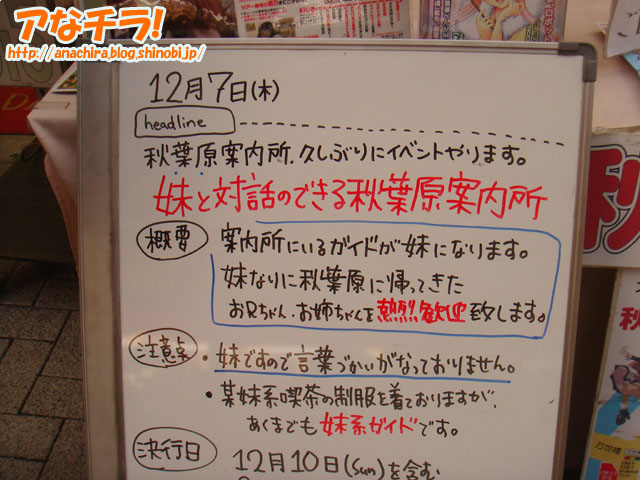 アなチラ!
http://anachira.blog.shinobi.jp/
12月7日(木)
headline
秋葉原案内所、久しぶりにイベントやります。
妹と対話のできる秋葉原案内所
概要
案内所にいるガイドが妹になります。
妹なりに秋葉原に帰ってきた
お兄ちゃん・お姉ちゃんを熱烈歓迎致します。
注意点
・妹ですので言葉づかいがなっておりません。
・某妹系喫茶の制服を着ておりますが、
あくまでも妹系ガイドです。
決行日
12月10日(Sun)を含む
万世橋